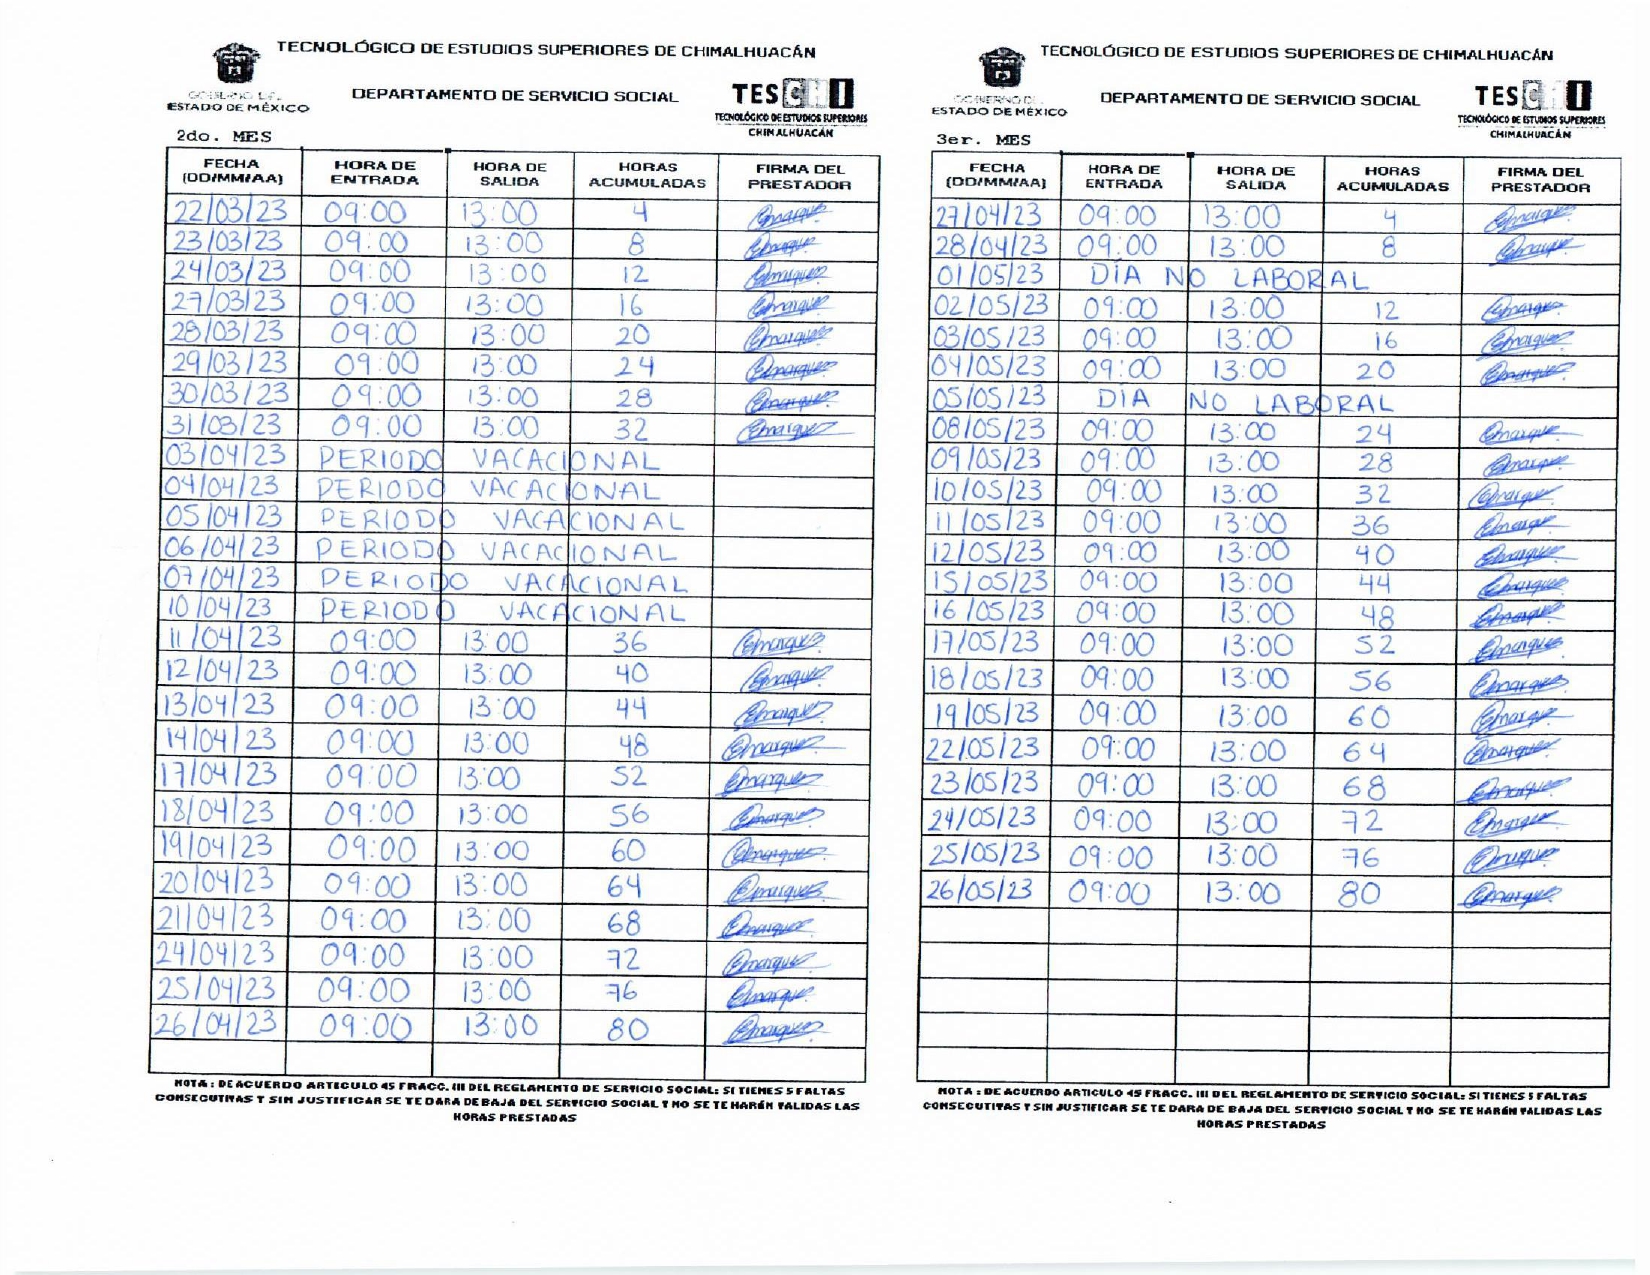 TECNOLÓGICO DE ESTUDIOS SUPERIORES DE CHIMALHUACÁN
ESTADO DE MÉXICO
DEPARTAMENTO DE SERVICIO SOCIAL
TESCHI
TECNOLÓGICO DE ESTUDIOS SUPERIORES
CHIMALHUACÁN
2do. MES
FECHA (DD/MM/AA) HORA DE ENTRADA HORA DE SALIDA HORAS ACUMULADAS FIRMA DEL PRESTADOR
22/03/23 09:00 13:00 4
23/03/23 09:00 13:00 8
24/03/23 09:00 13:00 12
27/03/23 09:00 13:00 16
28/03/23 09:00 13:00 20
29/03/23 09:00 13:00 24
30/03/23 09:00 13:00 28
31/03/23 09:00 13:00 32
03/04/23 PERIODO VACACIONAL
04/04/23 PERIODO VACACIONAL
05/04/23 PERIODO VACACIONAL
06/04/23 PERIODO VACACIONAL
07/04/23 PERIODO VACACIONAL
10/04/23 PERIODO VACACIONAL
11/04/23 09:00 13:00 36
12/04/23 09:00 13:00 40
13/04/23 09:00 13:00 44
14/04/23 09:00 13:00 48
17/04/23 09:00 13:00 52
18/04/23 09:00 13:00 56
19/04/23 09:00 13:00 60
20/04/23 09:00 13:00 64
21/04/23 09:00 13:00 68
24/04/23 09:00 13:00 72
25/04/23 09:00 13:00 76
26/04/23 09:00 13:00 80
NOTA : DE ACUERDO ARTICULO 45 FRACC. III DEL REGLAMENTO DE SERVICIO SOCIAL: SI TIENES 5 FALTAS
CONSECUTIVAS Y SIN JUSTIFICAR SE TE DARA DE BAJA DEL SERVICIO SOCIAL Y NO SE TE HARÁN VALIDAS LAS
HORAS PRESTADAS
TECNOLÓGICO DE ESTUDIOS SUPERIORES DE CHIMALHUACÁN
GOBIERNO DEL
ESTADO DE MÉXICO
DEPARTAMENTO DE SERVICIO SOCIAL
TESCHI
TECNOLÓGICO DE ESTUDIOS SUPERIORES
CHIMALHUACÁN
3er. MES
FECHA (DD/MM/AA) HORA DE ENTRADA HORA DE SALIDA HORAS ACUMULADAS FIRMA DEL PRESTADOR
27/04/23 09:00 13:00 4
28/04/23 09:00 13:00 8
01/05/23 DÍA NO LABORAL
02/05/23 09:00 13:00 12
03/05/23 09:00 13:00 16
04/05/23 09:00 13:00 20
05/05/23 DÍA NO LABORAL
08/05/23 09:00 13:00 24
09/05/23 09:00 13:00 28
10/05/23 09:00 13:00 32
11/05/23 09:00 13:00 36
12/05/23 09:00 13:00 40
15/05/23 09:00 13:00 44
16/05/23 09:00 13:00 48
17/05/23 09:00 13:00 52
18/05/23 09:00 13:00 56
19/05/23 09:00 13:00 60
22/05/23 09:00 13:00 64
23/05/23 09:00 13:00 68
24/05/23 09:00 13:00 72
25/05/23 09:00 13:00 76
26/05/23 09:00 13:00 80
NOTA : DE ACUERDO ARTICULO 45 FRACC. III DEL REGLAMENTO DE SERVICIO SOCIAL: SI TIENES 5 FALTAS
CONSECUTIVAS Y SIN JUSTIFICAR SE TE DARA DE BAJA DEL SERVICIO SOCIAL Y NO SE TE HARÁN VALIDAS LAS
HORAS PRESTADAS